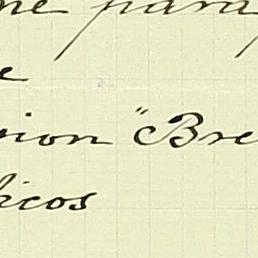 me para
e
sion "Bre
licos